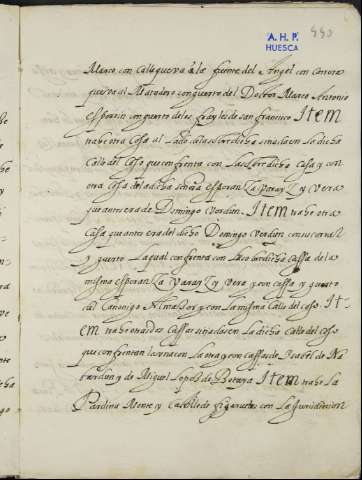 A. H. P.
HUESCA
440
Marco con Calle que va a la fuente del Angel con
que va al Matadero con guerto del Doctor Marco Antonio
Esporin con guerto de los frayles de san francisco Item
trahe otra Casa al Lado de la sobredicha sitiada en la dicha
Calle del Coso que confrenta con La sobredicha Casa y con
otra Casa de la dicha señora Esperan Za Paray Z y Vera
que antes era de Domingo Verdun. Item trahe otra
Casa que antes era del dicho Domingo Verdun con su corral
y guerto La qual confrenta con La sobredicha Cassa de la
misma Esperan Za Paray Z y Vera y con cassa y guerto
del Canonigo Almazor y con La misma Calle del Coso It-
em trahe otras dos Cassas sitiadas en La dicha Calle del Coso
que confrentan La una con La otra y con cassas de Isabel de Na-
bardun y de Miguel Lopez de Item trahe La
Pardina Monte y Castillo de figaruelas con La Jurisdiccion